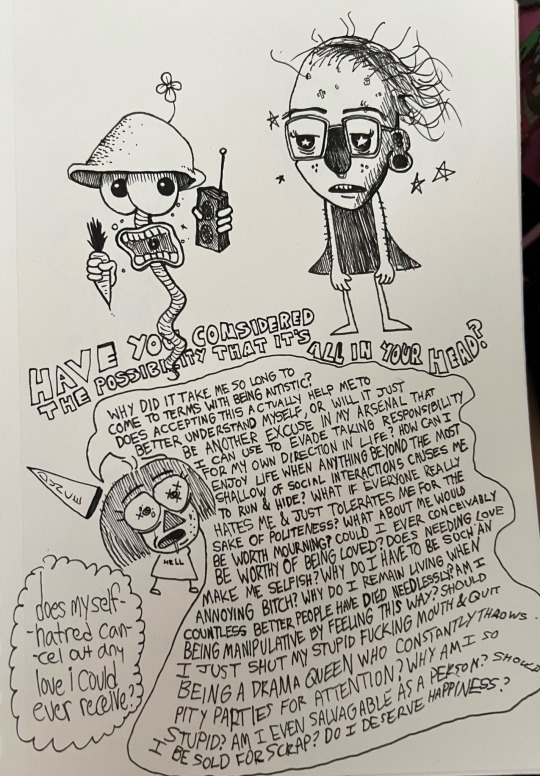 HAVE YOU CONSIDERED
THE POSSIBILITY THAT IT'S ALL IN YOUR HEAD?
WHY DID IT TAKE ME SO LONG TO
COME TO TERMS WITH BEING AUTISTIC?
DOES ACCEPTING THIS ACTUALLY HELP ME TO
BETTER UNDERSTAND MYSELF, OR WILL IT JUST
BE ANOTHER EXCUSE IN MY ARSENAL THAT
I CAN USE TO EVADE TAKING RESPONSIBILITY
FOR MY OWN DIRECTION IN LIFE? HOW CAN I
ENJOY LIFE WHEN ANYTHING BEYOND THE MOST
SHALLOW OF SOCIAL INTERACTIONS CAUSES ME
TO RUN & HIDE? WHAT IF EVERYONE REALLY
HATES ME & JUST TOLERATES ME FOR THE
SAKE OF POLITENESS? WHAT ABOUT ME WOULD
BE WORTH MOURNING? COULD I EVER CONCEIVABLY
BE WORTHY OF BEING LOVED? DOES NEEDING LOVE
MAKE ME SELFISH? WHY DO I HAVE TO BE SUCH AN
ANNOYING BITCH? WHY DO I REMAIN LIVING WHEN
COUNTLESS BETTER PEOPLE HAVE DIED NEEDLESSLY? AM I
BEING MANIPULATIVE BY FEELING THIS WAY? SHOULD
I JUST SHUT MY STUPID FUCKING MOUTH & QUIT
BEING A DRAMA QUEEN WHO CONSTANTLY THROWS
PITY PARTIES FOR ATTENTION? WHY AM I SO
STUPID? AM I EVEN SALVAGABLE AS A PERSON? SHOULD
I BE SOLD FOR SCRAP? DO I DESERVE HAPPINESS?
HELL
does my self-
-hatred can-
-cel out any
love i could
ever receive?